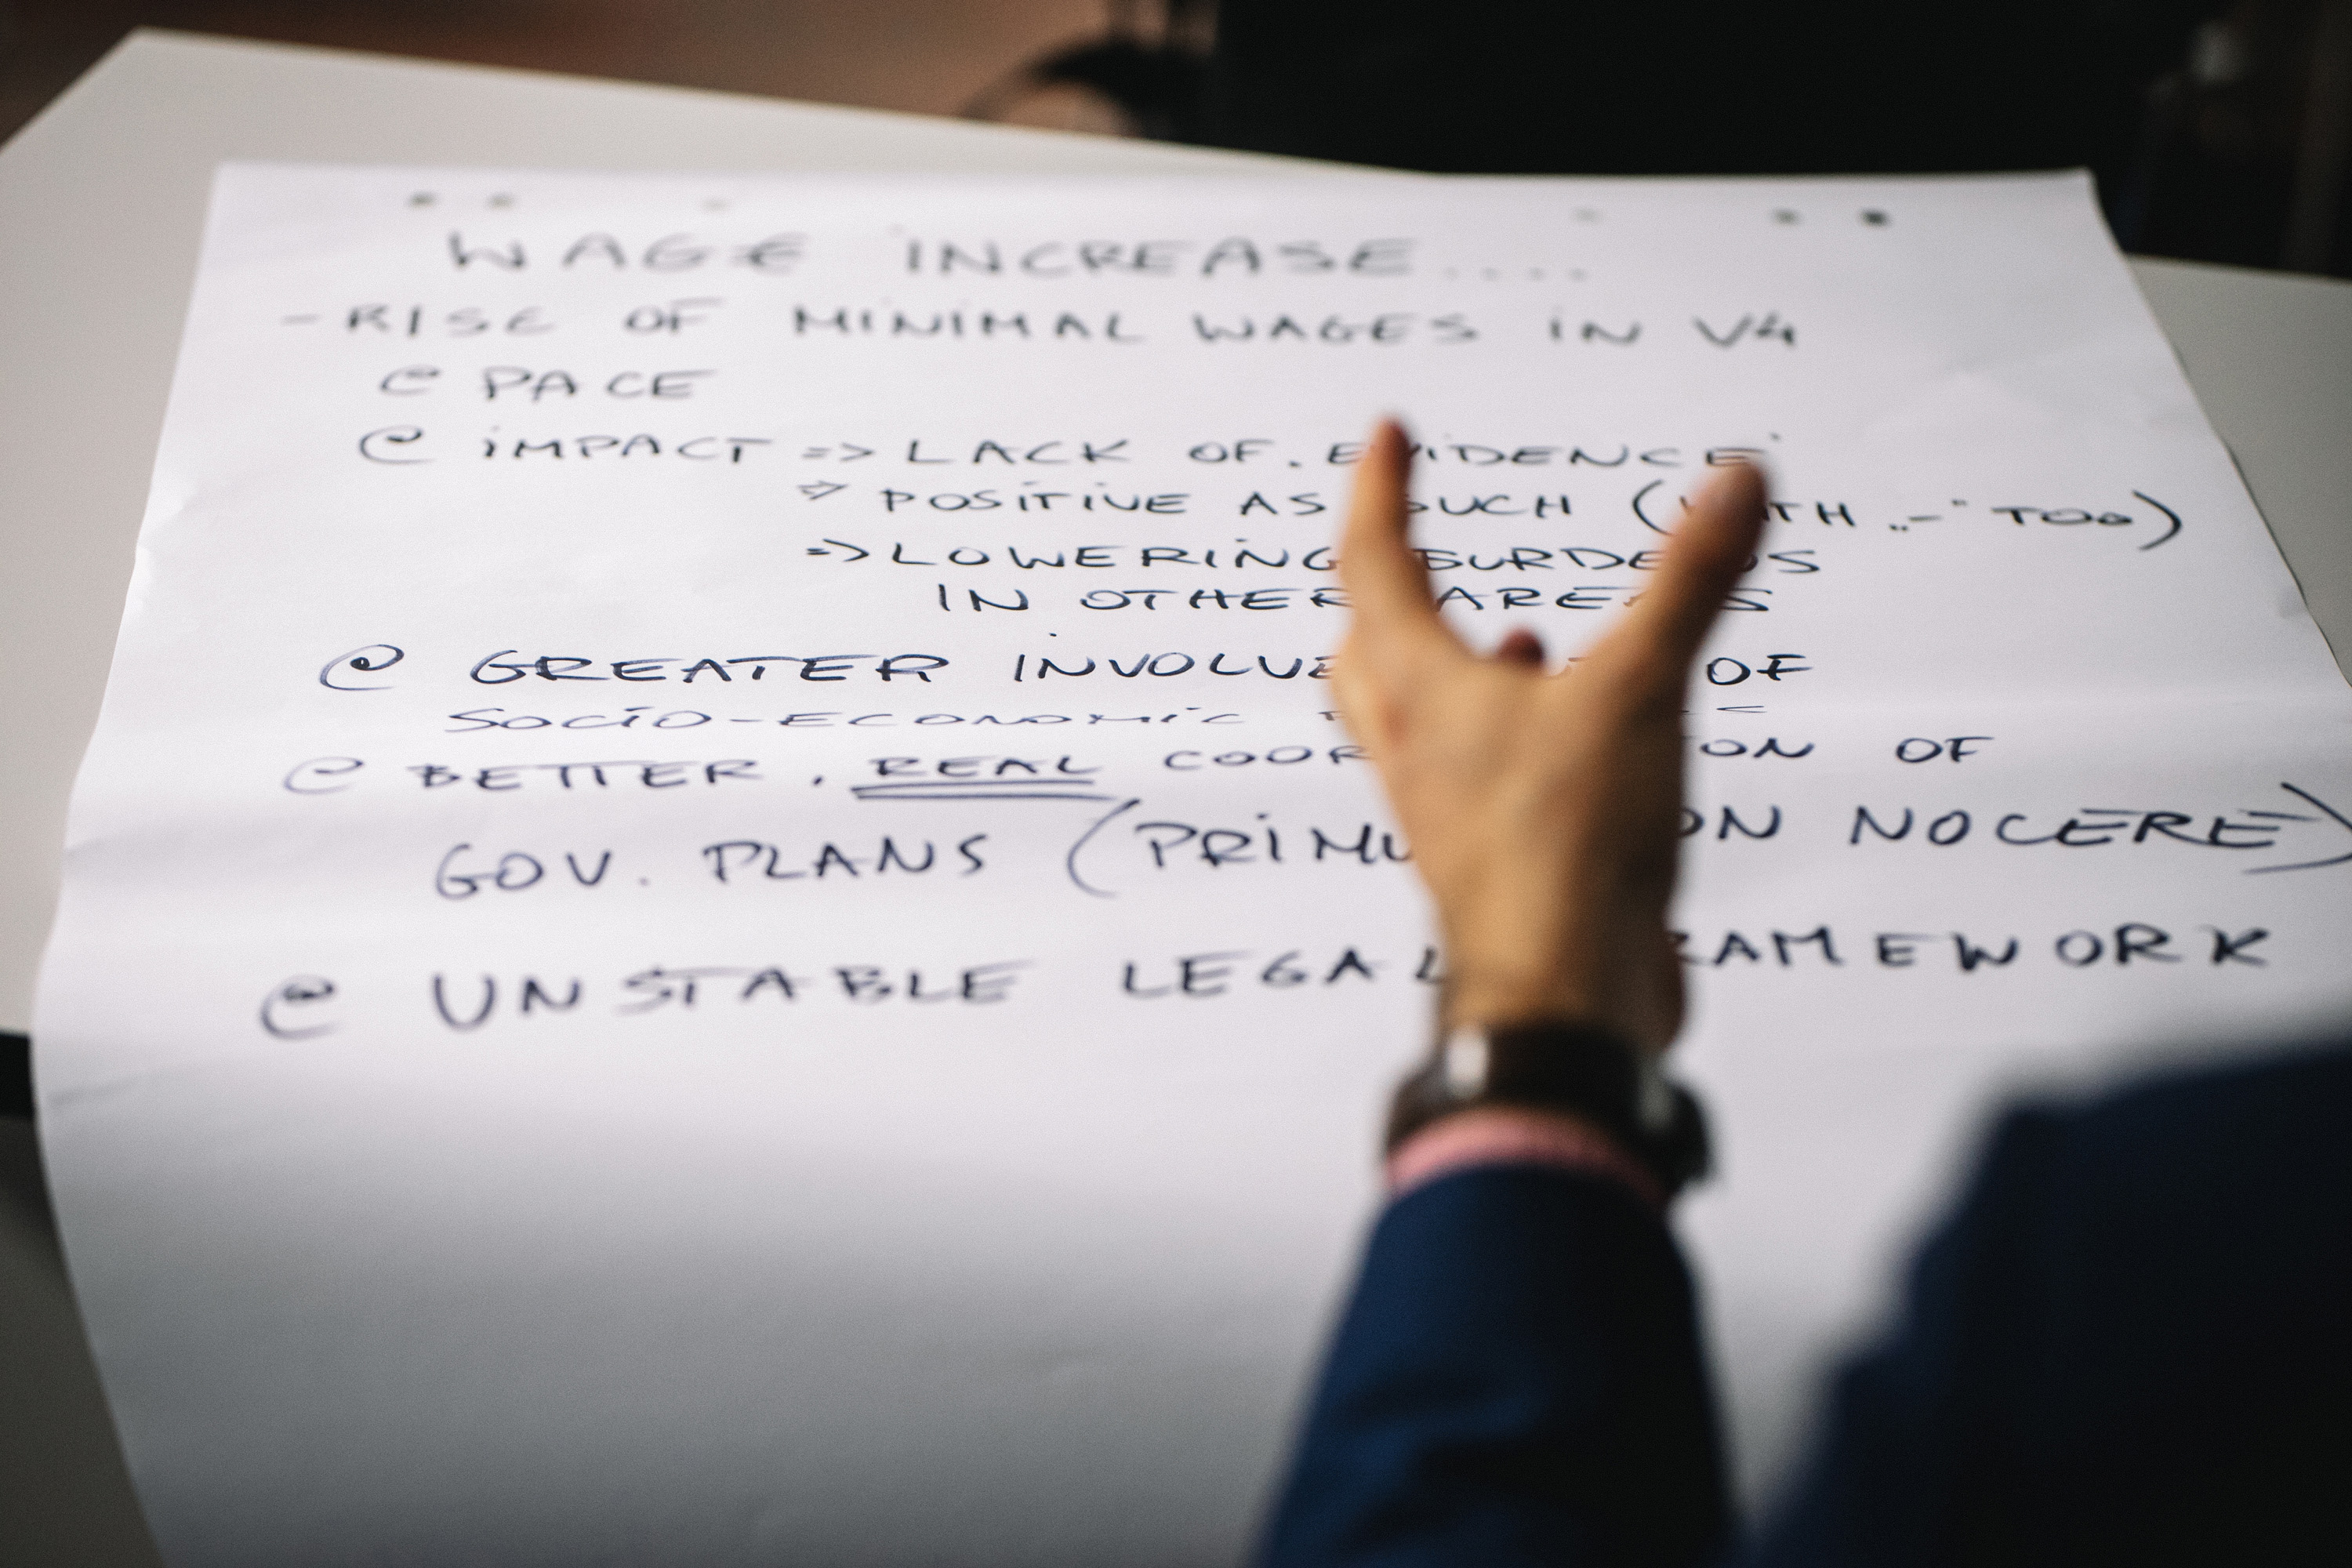 WAGE INCREASE....
- RISE OF MINIMAL WAGES IN V4
@ PACE
@ IMPACT => LACK OF. EVIDENCE
=> POSITIVE AS SUCH (WITH „-" TOO)
=> LOWERING BURDENS
IN OTHER AREAS
@ GREATER INVOLVEMENT OF
SOCIO-ECONOMIC
@ BETTER, REAL COORDINATION OF
GOV. PLANS (PRIMUM NON NOCERE)
@ UNSTABLE LEGAL FRAMEWORK